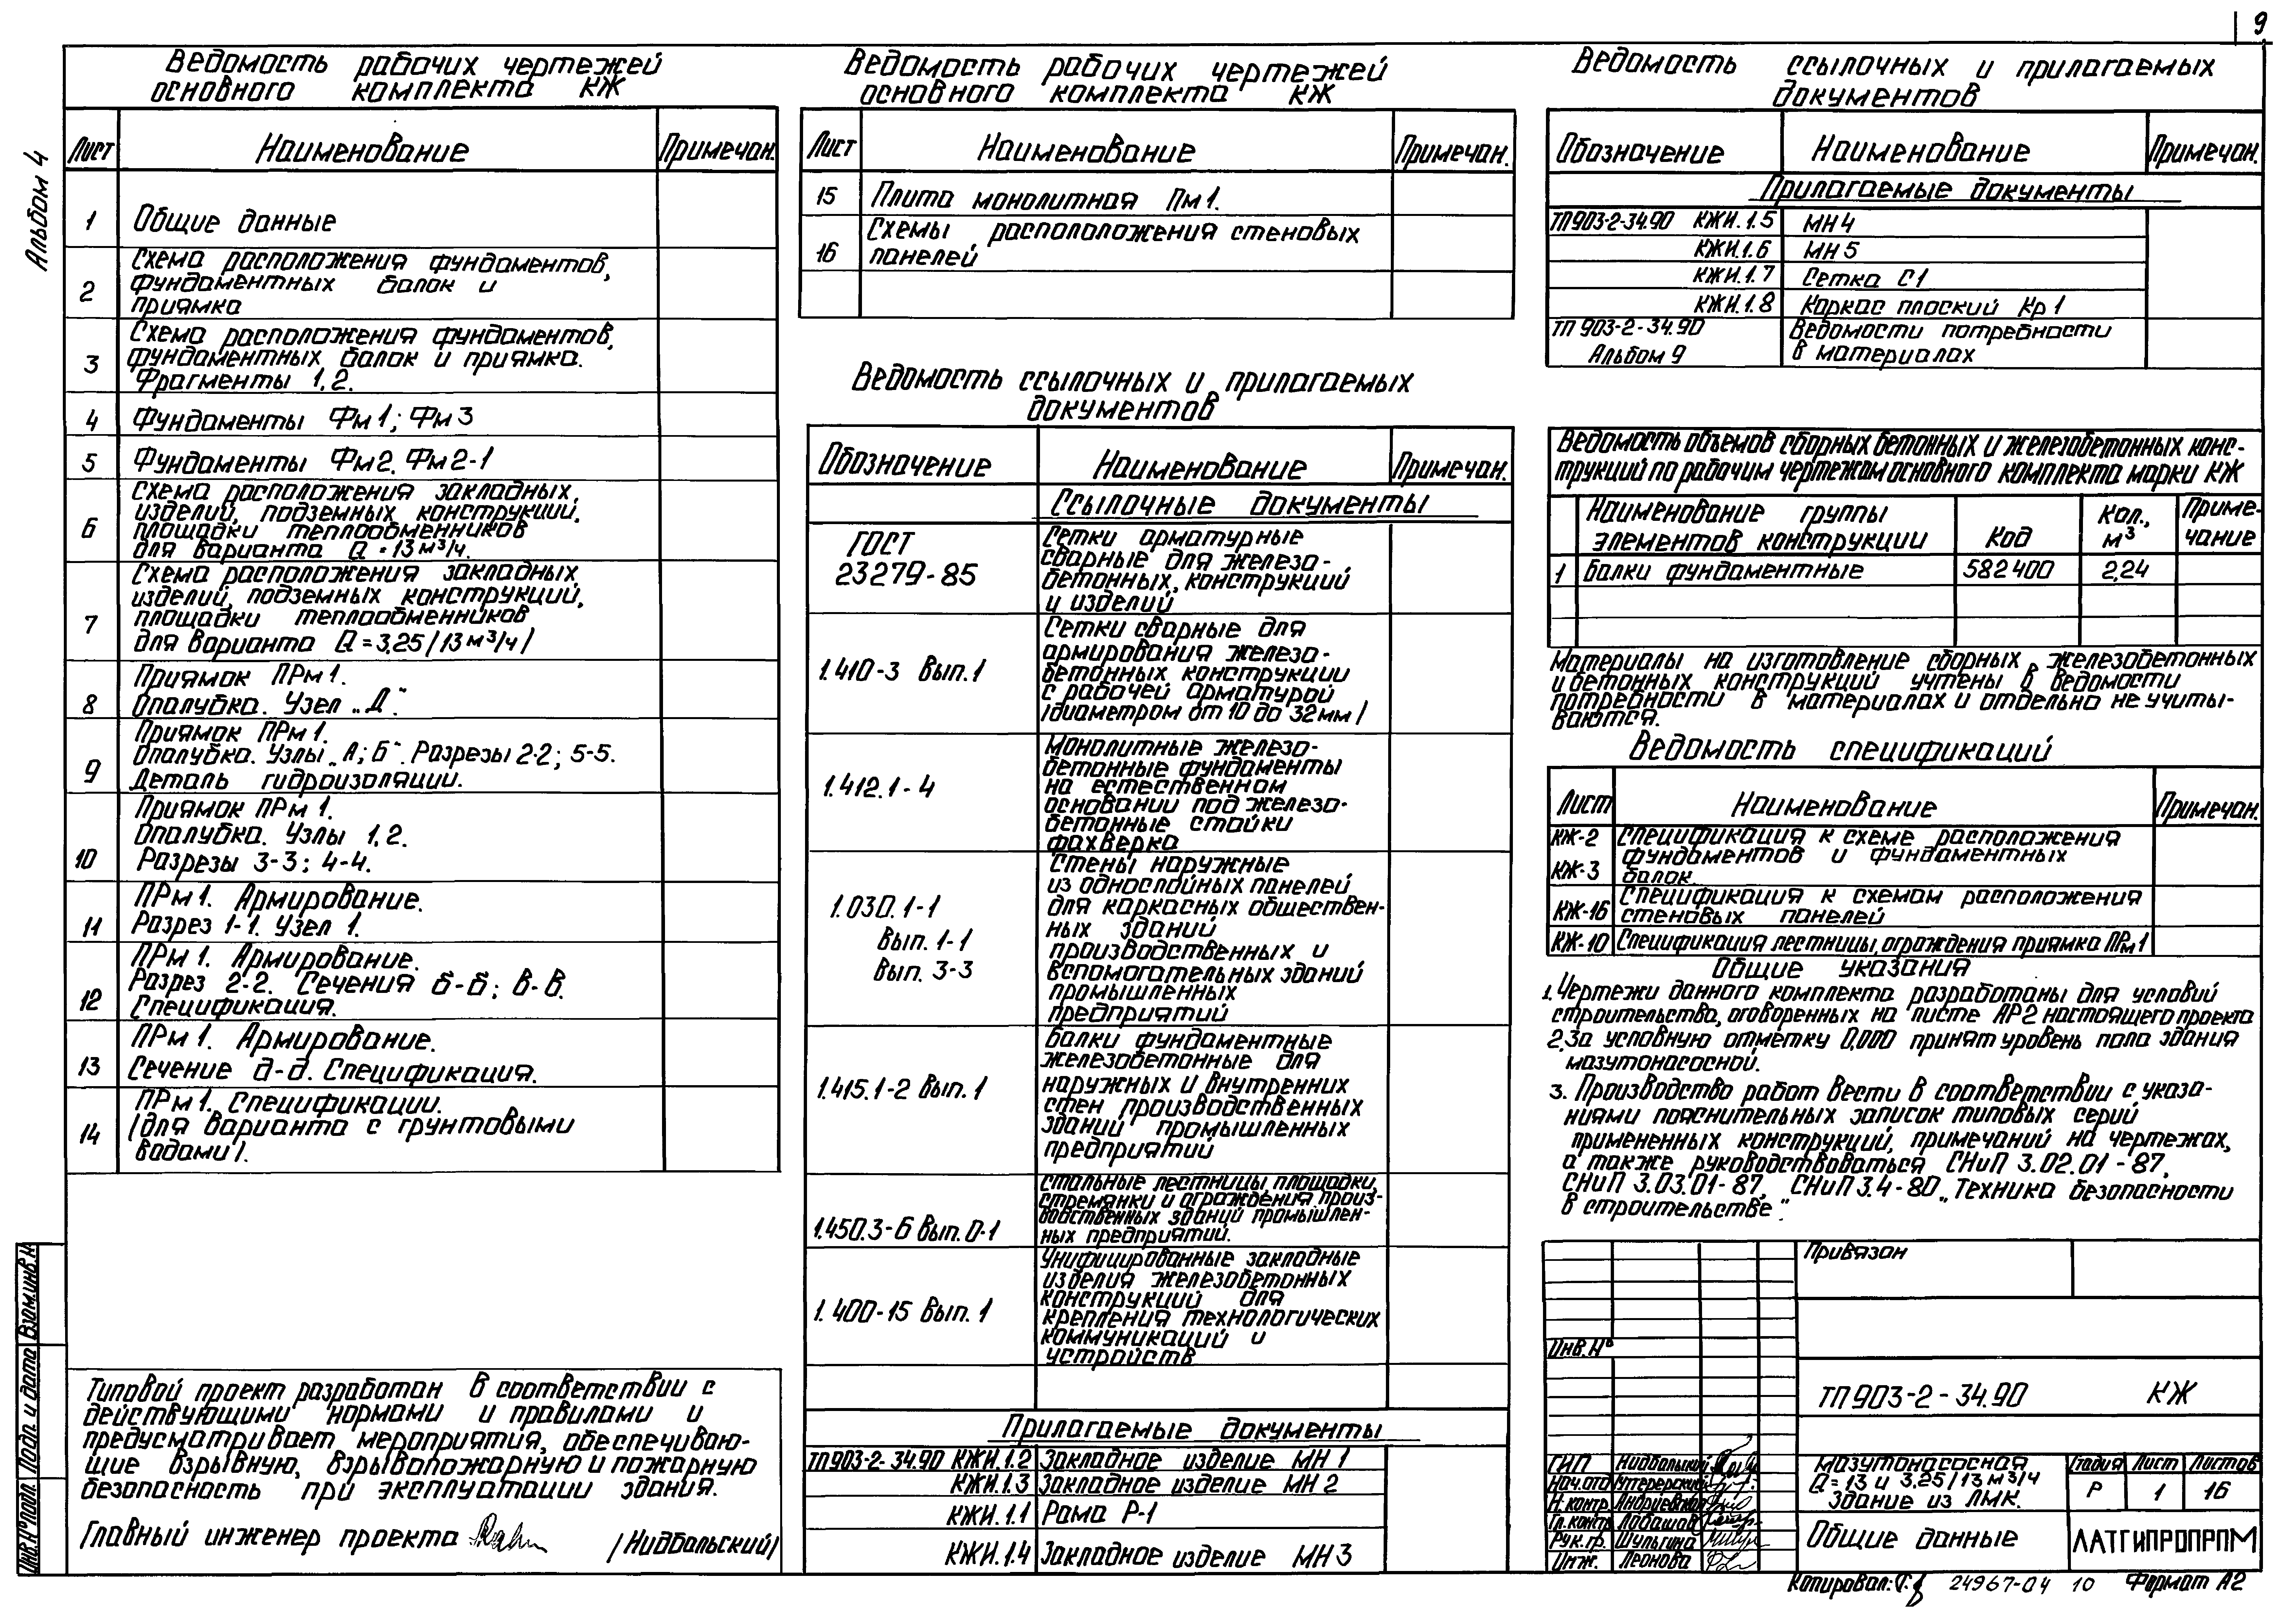 9
Альбом 4
Ведомость рабочих чертежей
основного комплекта КЖ
Лист Наименование Примечан.
1 Общие данные
Схема расположения фундаментов,
2 фундаментных балок и
приямка
Схема расположения фундаментов,
3 фундаментных балок и приямка.
Фрагменты 1,2.
4 Фундаменты Фм1; Фм3
5 Фундаменты Фм2, Фм2-1
Схема расположения закладных,
изделий, подземных конструкций,
6 площадки теплообменников
для варианта Q = 13 м³/ч.
Схема расположения закладных
изделий, подземных конструкций,
7 площадки теплообменников
для варианта Q = 3,25/13 м³/ч/
Приямок ПРм1.
8 Опалубка. Узел „Д“.
Приямок ПРм1.
9 Опалубка. Узлы „А; Б“. Разрезы 2-2; 5-5.
Деталь гидроизоляции.
Приямок ПРм1.
Опалубка. Узлы 1,2.
10 Разрезы 3-3; 4-4.
ПРм1. Армирование.
11 Разрез 1-1. Узел 1.
ПРм1. Армирование.
Разрез 2-2. Сечения Б-Б; В-В.
12 Спецификация.
ПРм1. Армирование.
13 Сечение д-д. Спецификация.
ПРм1. Спецификации.
14 /для варианта с грунтовыми
водами/.
Типовой проект разработан в соответствии с
действующими нормами и правилами и
предусматривает мероприятия, обеспечиваю-
щие взрывную, взрывопожарную и пожарную
безопасность при эксплуатации здания.
Главный инженер проекта /Нидбальский/
Инв.№ подл. Подп. и дата Взам.инв.№
Ведомость рабочих чертежей
основного комплекта КЖ
Лист Наименование Примечан.
15 Плита монолитная Пм1.
16 Схемы распололожения стеновых
панелей
Ведомость ссылочных и прилагаемых
документов
Обозначение Наименование Примечан.
Ссылочные документы
ГОСТ
23279-85
Сетки арматурные
сварные для железо-
бетонных, конструкций
и изделий
1.410-3 Вып.1
Сетки сварные для
армирования железо-
бетонных конструкции
с рабочей арматурой
/диаметром от 10 до 32мм/
1.412.1-4
Монолитные железо-
бетонные фундаменты
на естественном
основании под железо-
бетонные стойки
фахверка
1.030.1-1
Вып. 1-1
Вып. 3-3
Стены наружные
из однослойных панелей
для каркасных обществен-
ных зданий
производственных и
вспомогательных зданий
промышленных
предприятий
1.415.1-2 Вып.1
Балки фундаментные
железобетонные для
наружных и внутренних
стен производственных
зданий промышленных
предприятий
1.450.3-6 Вып.0-1
Стальные лестницы, площадки,
стремянки и ограждения произ-
водственных зданий промышлен-
ных предприятий.
1.400-15 Вып.1
Унифицированные закладные
изделия железобетонных
конструкций для
крепления технологических
коммуникаций и
устройств
Прилагаемые документы
ТП903-2-34.90 КЖИ.1.2 Закладное изделие МН 1
КЖИ.1.3 Закладное изделие МН 2
КЖИ.1.1 Рама Р-1
КЖИ.1.4 Закладное изделие МН3
Ведомость ссылочных и прилагаемых
документов
Обозначение Наименование Примечан.
Прилагаемые документы
ТП903-2-34.90 КЖИ.1.5 МН4
КЖИ.1.6 МН5
КЖИ.1.7 Сетка С1
КЖИ.1.8 Каркас плоский Кр1
ТП 903-2-34.90 Ведомости потребности
Альбом 9 в материалах
Ведомость объемов сборных бетонных и железобетонных конс-
трукций по рабочим чертежам основного комплекта марки КЖ
Наименование группы
элементов конструкции
Код
Кол.,
м³
Приме-
чание
1 Балки фундаментные 582400 2,24
Материалы на изготовление сборных железобетонных
и бетонных конструкций учтены в ведомости
потребности в материалах и отдельно не учиты-
ваются.
Ведомость спецификаций
Лист Наименование Примечан.
КЖ-2 Спецификация к схеме расположения
фундаментов и фундаментных
КЖ-3 балок.
Спецификация к схемам расположения
КЖ-16 стеновых панелей
КЖ-10 Спецификация лестницы, ограждения приямка ПРм1
Общие указания
1. Чертежи данного комплекта разработаны для условий
строительства, оговоренных на листе АР2 настоящего проекта
2.За условную отметку 0,000 принят уровень пола здания
мазутонасосной.
3. Производство работ вести в соответствии с указа-
ниями пояснительных записок типовых серий
примененных конструкций, примечаний на чертежах,
а также руководствоваться СНиП 3.02.01-87,
СНиП 3.03.01-87, СНиП 3.4-80 „Техника безопасности
в строительстве“.
Привязан
Инв.№
ТП903-2-34.90 КЖ
ГИП Нидбальский
Нач.отд Уттерерский
Н.контр. Андриевская
Гл.констр Лабашов
Рук.гр. Шульгина
Инж. Леонова
Мазутонасосная
Q=13 и 3,25/13 м³/ч
Здание из ЛМК.
Стадия Лист Листов
Р 1 16
Общие данные
ЛАТГИПРОПРОМ
Копировал: 24967-04 10 Формат А2